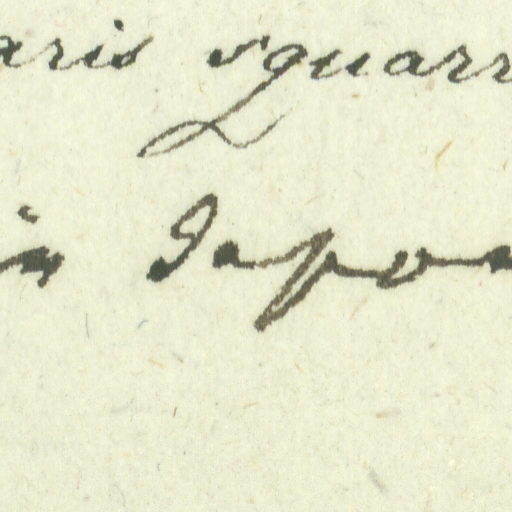 aris squarr
in Japon